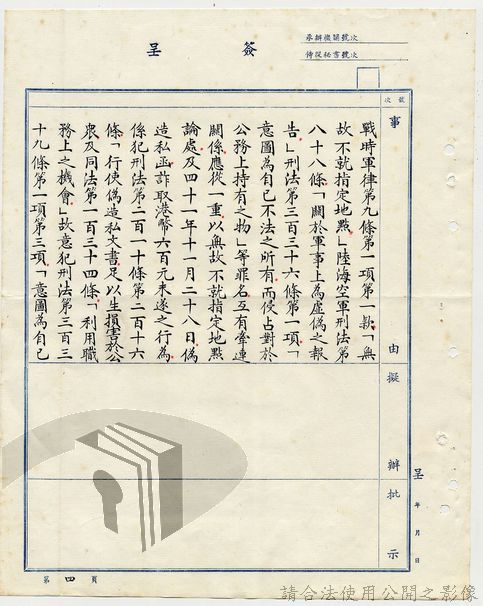 簽呈
承辦機關號次
侍從秘書號次
號次
事由
擬辦
批示
戰時軍律第九條第一項第一款「無
故不就指定地點」陸海空軍刑法第
八十八條「關於軍事上為虛偽之報
告」刑法第三百三十六條第一項「
意圖為自己不法之所有而侵占對於
公務上持有之物」等罪名互有牽連
關係應從一重以無故不就指定地點
論處及四十一年十一月二十八日偽
造私函詐取港幣六百元未遂之行為
係犯刑法第二百一十條第二百十六
條「行使偽造私文書足以生損害於公
眾及同法第一百三十四條「利用職
務上之機會」故意犯刑法第三百三
十九條第一項第三項「意圖為自己
呈 年 月 日
第四頁
請合法使用公開之影像